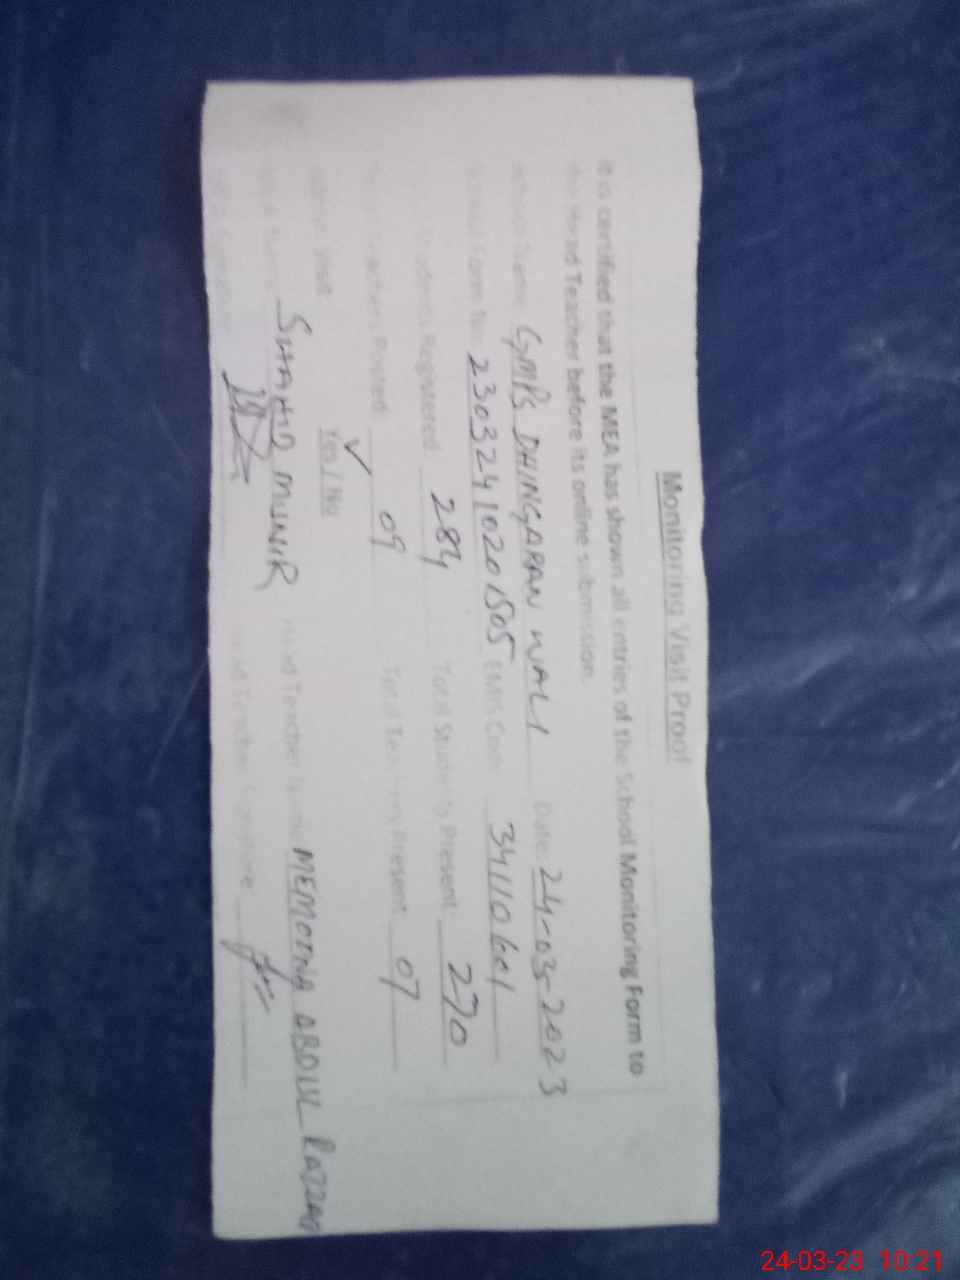 Monitoring Visit Proof
It is certified that the MEA has shown all entries of the School Monitoring Form to
the Head Teacher before its online submission.
School Name: GMPS DHINGARAN WALI Date: 24-03-2023
School Form No: 23032410201505 EMIS Code: 34110601
Students Registered: 284 Total Students Present: 270
Teachers Posted: 09 Total Teachers Present: 07
Visit: Yes / No
SHAHID MUNIR Head Teacher Name MEMOONA ABDUL RAZZAQ
Head Teacher Signature
24-03-23 10:21